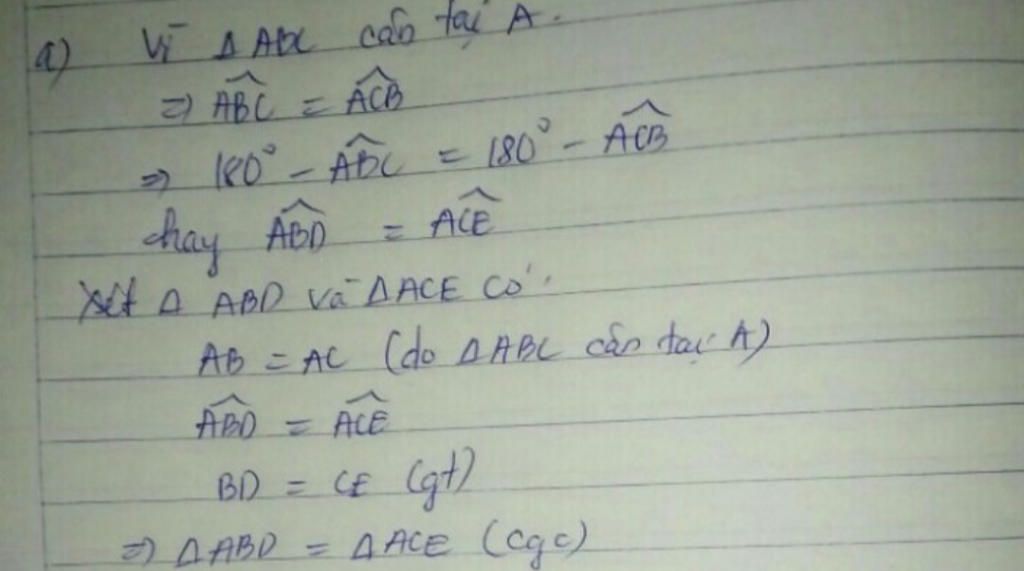 a) Vì Δ ABC cân tại A.
⇒ \widehat{ABC} = \widehat{ACB}
⇒ 180° - \widehat{ABC} = 180° - \widehat{ACB}
hay \widehat{ABD} = \widehat{ACE}
Xét Δ ABD và Δ ACE có:
AB = AC (do Δ ABC cân tại A)
\widehat{ABD} = \widehat{ACE}
BD = CE (gt)
⇒ Δ ABD = Δ ACE (cgc)